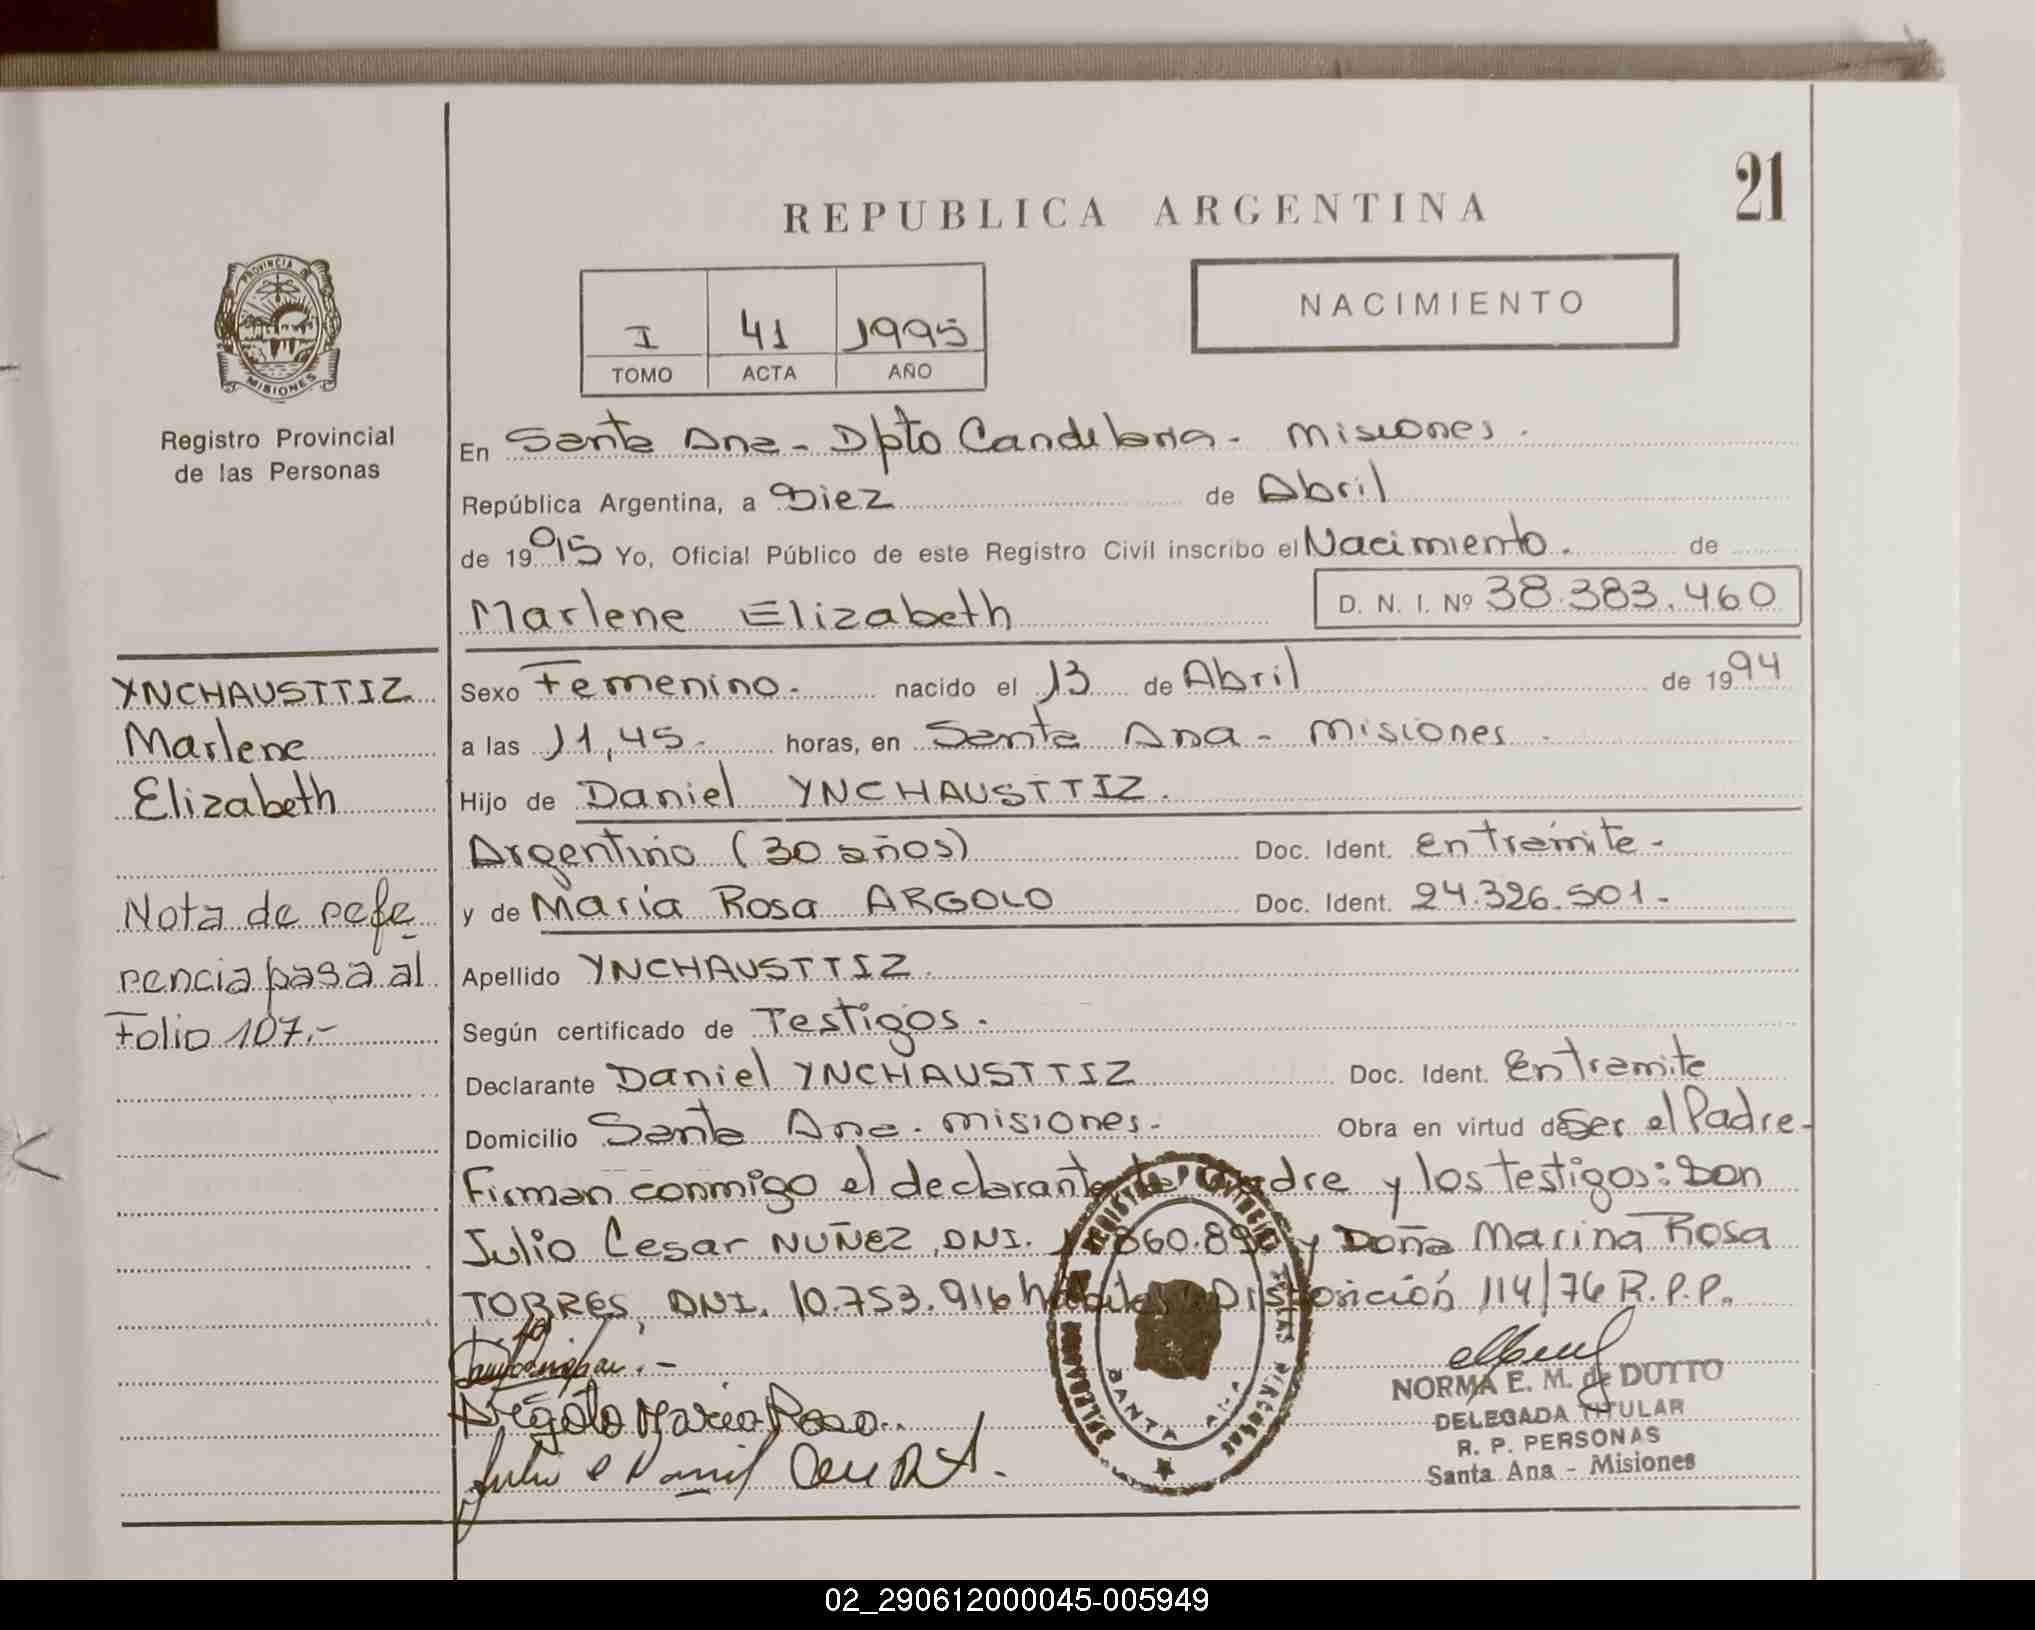 21
REPUBLICA ARGENTINA
PROVINCIA DE
MISIONES
Registro Provincial
de las Personas
I 41 1995
TOMO ACTA AÑO
NACIMIENTO
En Santa Ana - Dpto Candelaria - Misiones.
República Argentina, a Diez de Abril
de 1995 Yo, Oficial Público de este Registro Civil inscribo el Nacimiento. de
Marlene Elizabeth D. N. I. Nº 38.383.460
YNCHAUSTTIZ
Marlene
Elizabeth
Nota de refe
rencia pasa al
Folio 107.-
Sexo Femenino. nacido el 13 de Abril de 1994
a las 11,45. horas, en Santa Ana - Misiones.
Hijo de Daniel YNCHAUSTTIZ.
Argentino (30 años) Doc. Ident. en trámite.
y de María Rosa ARGOLO Doc. Ident. 24.326.501.
Apellido YNCHAUSTTIZ.
Según certificado de Testigos.
Declarante Daniel YNCHAUSTTIZ Doc. Ident. En tramite
Domicilio Santa Ana. Misiones. Obra en virtud de Ser el Padre.
Firman conmigo el declarante la Madre y los testigos: Don
Julio Cesar NUÑEZ, DNI. y Doña Marina Rosa
TORRES, DNI. 10.753.916 hábiles Disposición 114/76 R.P.P.
Argolo Maria Rosa
NORMA E. M. de DUTTO
DELEGADA TITULAR
R. P. PERSONAS
Santa Ana - Misiones
SANTA ANA
02_290612000045-005949